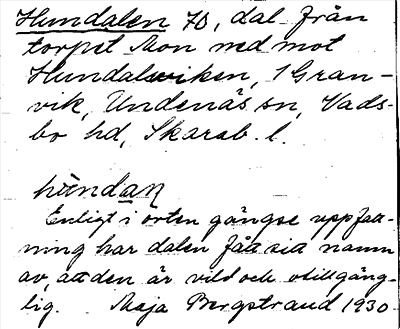 Hundalen 70, dal från
torpet Mon ned mot
Hundalsviken, i Gran-
vik, Undenäs sn, Vads-
bo hd, Skarab. l.
hùndaɳ
Enligt i orten gängse uppfatt-
ning har dalen fått sitt namn
av, att den är vild och otillgäng-
lig. Maja Bergstrand 1930